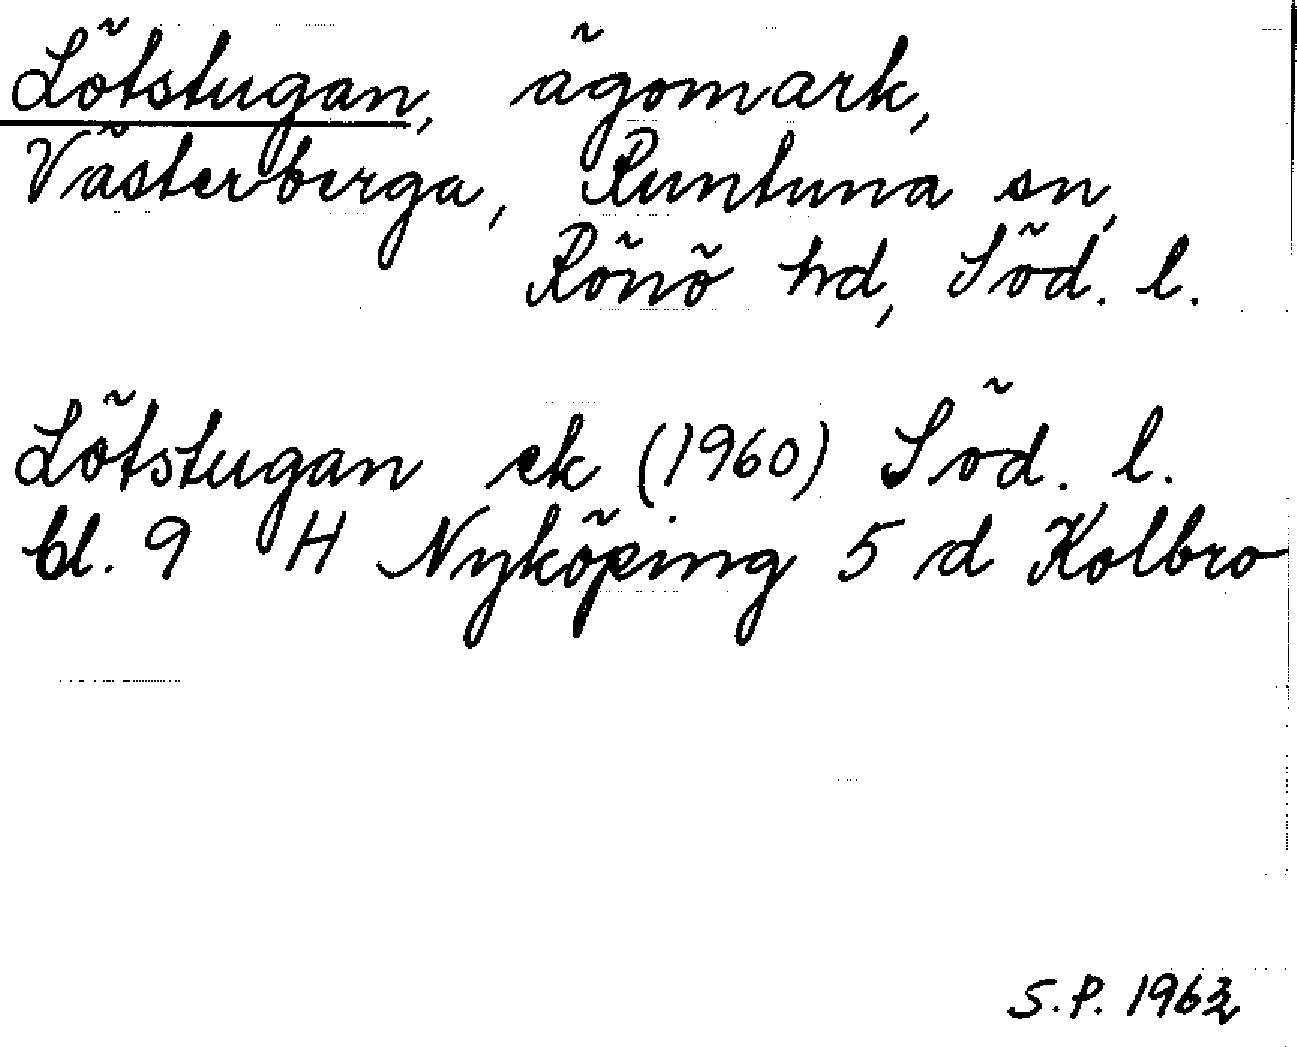 Lötstugan, ägomark,
Västerberga, Runtuna sn,
Rönö hd, Söd. l.
Lötstugan ek (1960) Söd. l.
bl. 9 H Nyköping 5 d Kolbro
S.P. 1963